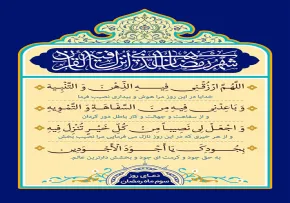 شهر رمضان الذی انزل فیه القرآن
اللهم ارزقنی فیه الذهن و التنبیه
خدایا در این روز مرا هوش و بیداری نصیب فرما
و باعدنی فیه من السفاهة و التمویه
و از سفاهت و جهالت و کار باطل دور گردان
و اجعل لی نصیبا من کل خیر تنزل فیه
و از هر خیری که در این روز نازل می فرمایی مرا نصیب بخش
بجودک یا اجود الاجودین
به حق جود و کرمت ای جود و بخشش دارترین عالم
دعای روز
سوم ماه رمضان